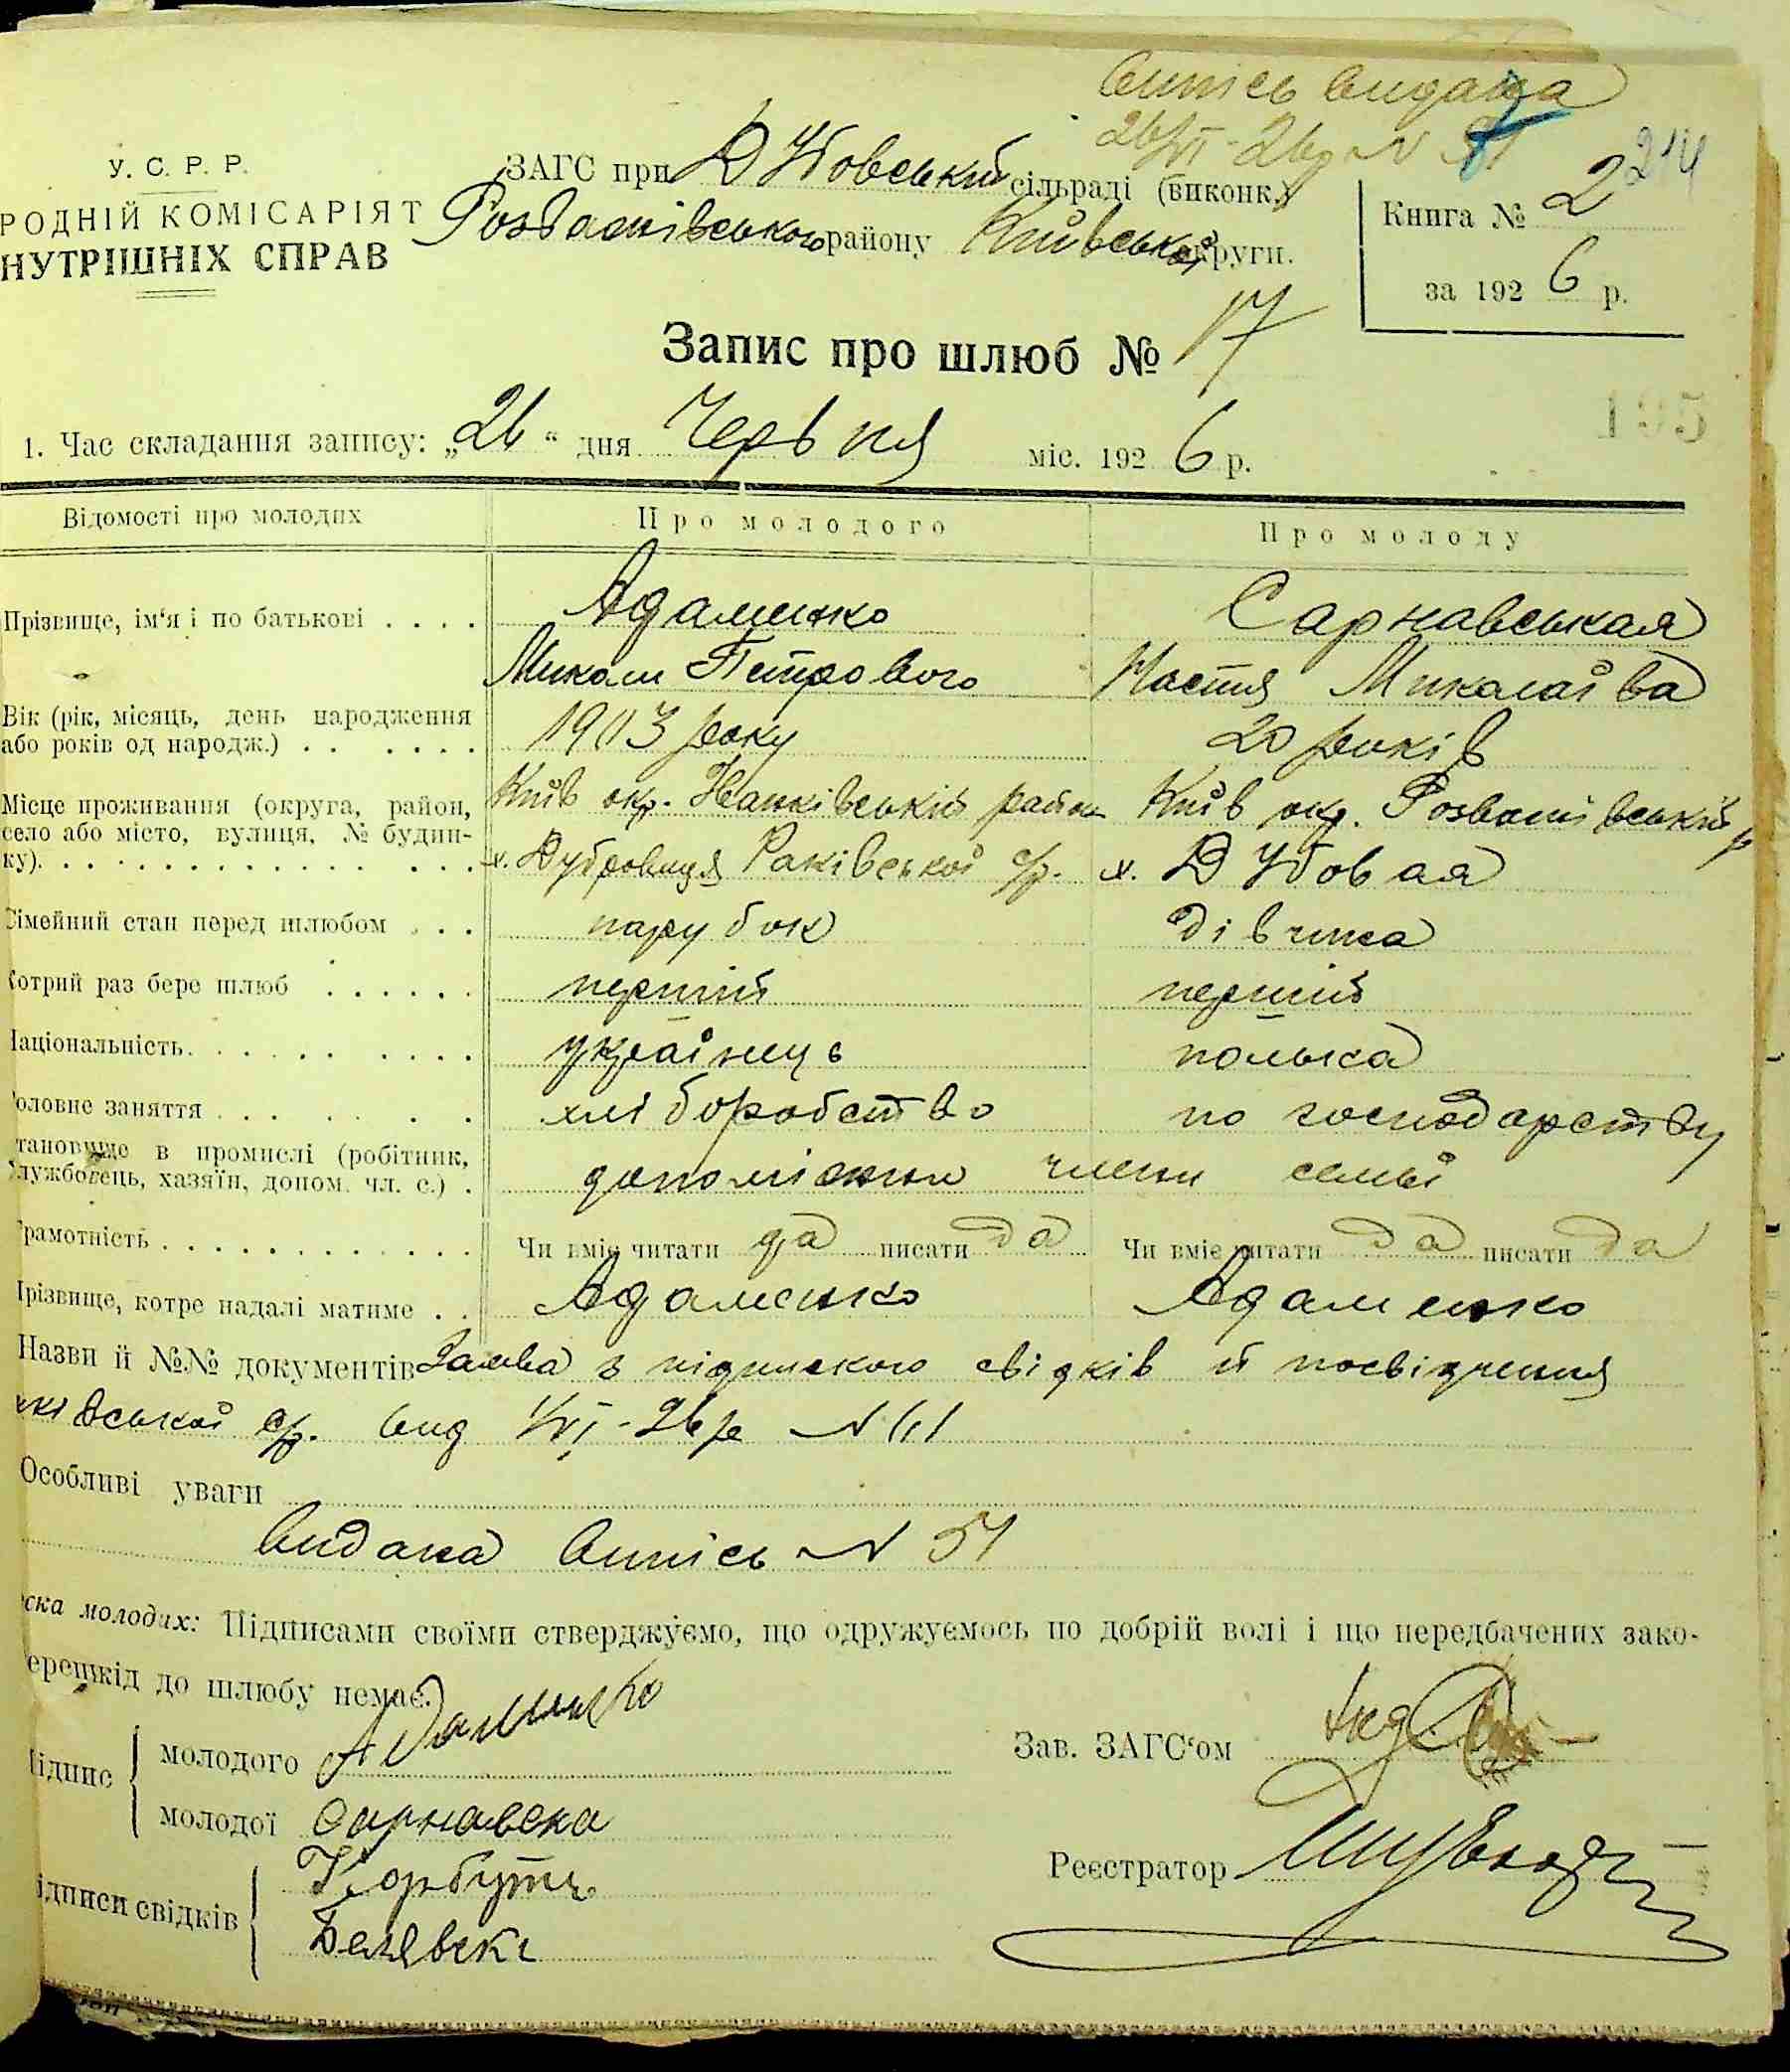 Випісь видана
26/VI-26р N 51
214
У. С. Р. Р.
РОДНІЙ КОМІСАРІЯТ
НУТРІШНІХ СПРАВ
ЗАГС при сільраді (виконк.)
Розважівського району Київської округи.
Книга № 2
за 192 6 р.
Запис про шлюб № 17
195
1. Час складання запису: „26“ дня Червня міс. 192 6 р.
Відомості про молодих Про молодого Про молоду
Прізвище, ім‘я і по батькові . . . . Адаменко Сарнавськая
Миколи Петрового Настя Миколаїва
Вік (рік, місяць, день народження
або років од народж.) . . . . . . 1903 року 20 років
Місце проживання (округа, район, Київ окр. Іванківський район Київ окр. Розважівський р
село або місто, вулиця, № будин-
ку). . . . . . . . . . . . . . . х. Дубровиця Раківської с/р. х.
Сімейний стан перед шлюбом . . . парубок дівчина
Котрий раз бере шлюб . . . . . . перший перший
Національність. . . . . . . . . . українець полька
Головне заняття . . . . . . . хліборобство по господарству
тановище в промислі (робітник,
службовець, хазяїн, допом. чл. с.) . допоміжни члени семьї
Грамотність . . . . . . . . . . . . . Чи вміє читати да писати да Чи вміє читати да писати да
Прізвище, котре надалі матиме . . Адаменко Адаменко
Назви й №№ документів Заява з підпискою свідків й посвідчення
ківської с/р. вид 1/VI-26р N 111
Особливі уваги
Видана випісь N 51
ска молодих: Підписами своїми стверджуємо, що одружуємось по добрій волі і що передбачених зако-
ерешкід до шлюбу немає.
Підпис молодого Адаменко
молодої Сарнавска
ідписи свідків Корбутъ
Белявскі
Зав. ЗАГС‘ом
Реєстратор